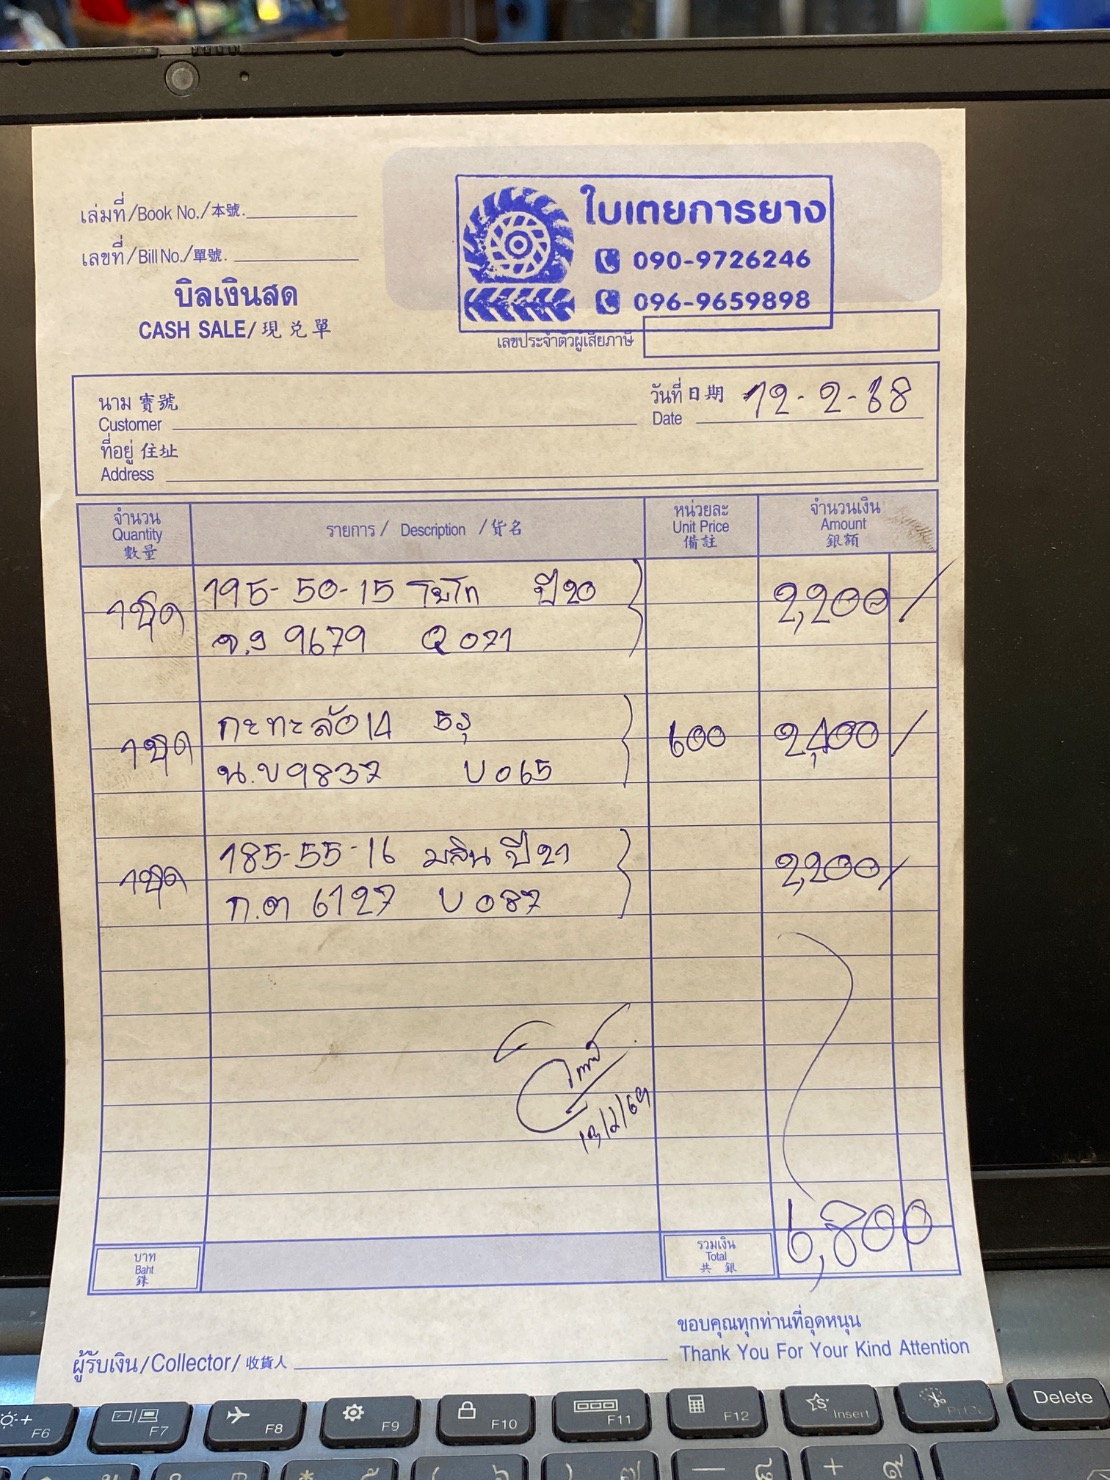 เล่มที่/Book No./本號.
เลขที่/Bill No./單號.
บิลเงินสด
CASH SALE/現兑單
ใบเตยการยาง
090-9726246
096-9659898
เลขประจำตัวผู้เสียภาษี
นาม 寶號
Customer
วันที่ 日期 12-2-68
Date
ที่อยู่ 住址
Address
จำนวน
Quantity
數量
รายการ / Description / 貨名
หน่วยละ
Unit Price
備註
จำนวนเงิน
Amount
銀額
1ชุด 195-50-15 โยโก ปี20 2,200/
9679 Q 071
1ชุด กะทะล้อ14 5รู 600 2,400/
น.ข 9837 U 065
1ชุด 185-55-16 มสิน ปี21 2,200/
ก.ต 6127 U 087
13/2/69
บาท
Baht
銖
รวมเงิน
Total
共 銀
6,800
ขอบคุณทุกท่านที่อุดหนุน
ผู้รับเงิน/Collector/收貨人
Thank You For Your Kind Attention
F6
F7
F8
F9
F10
F11
F12
Insert
Delete